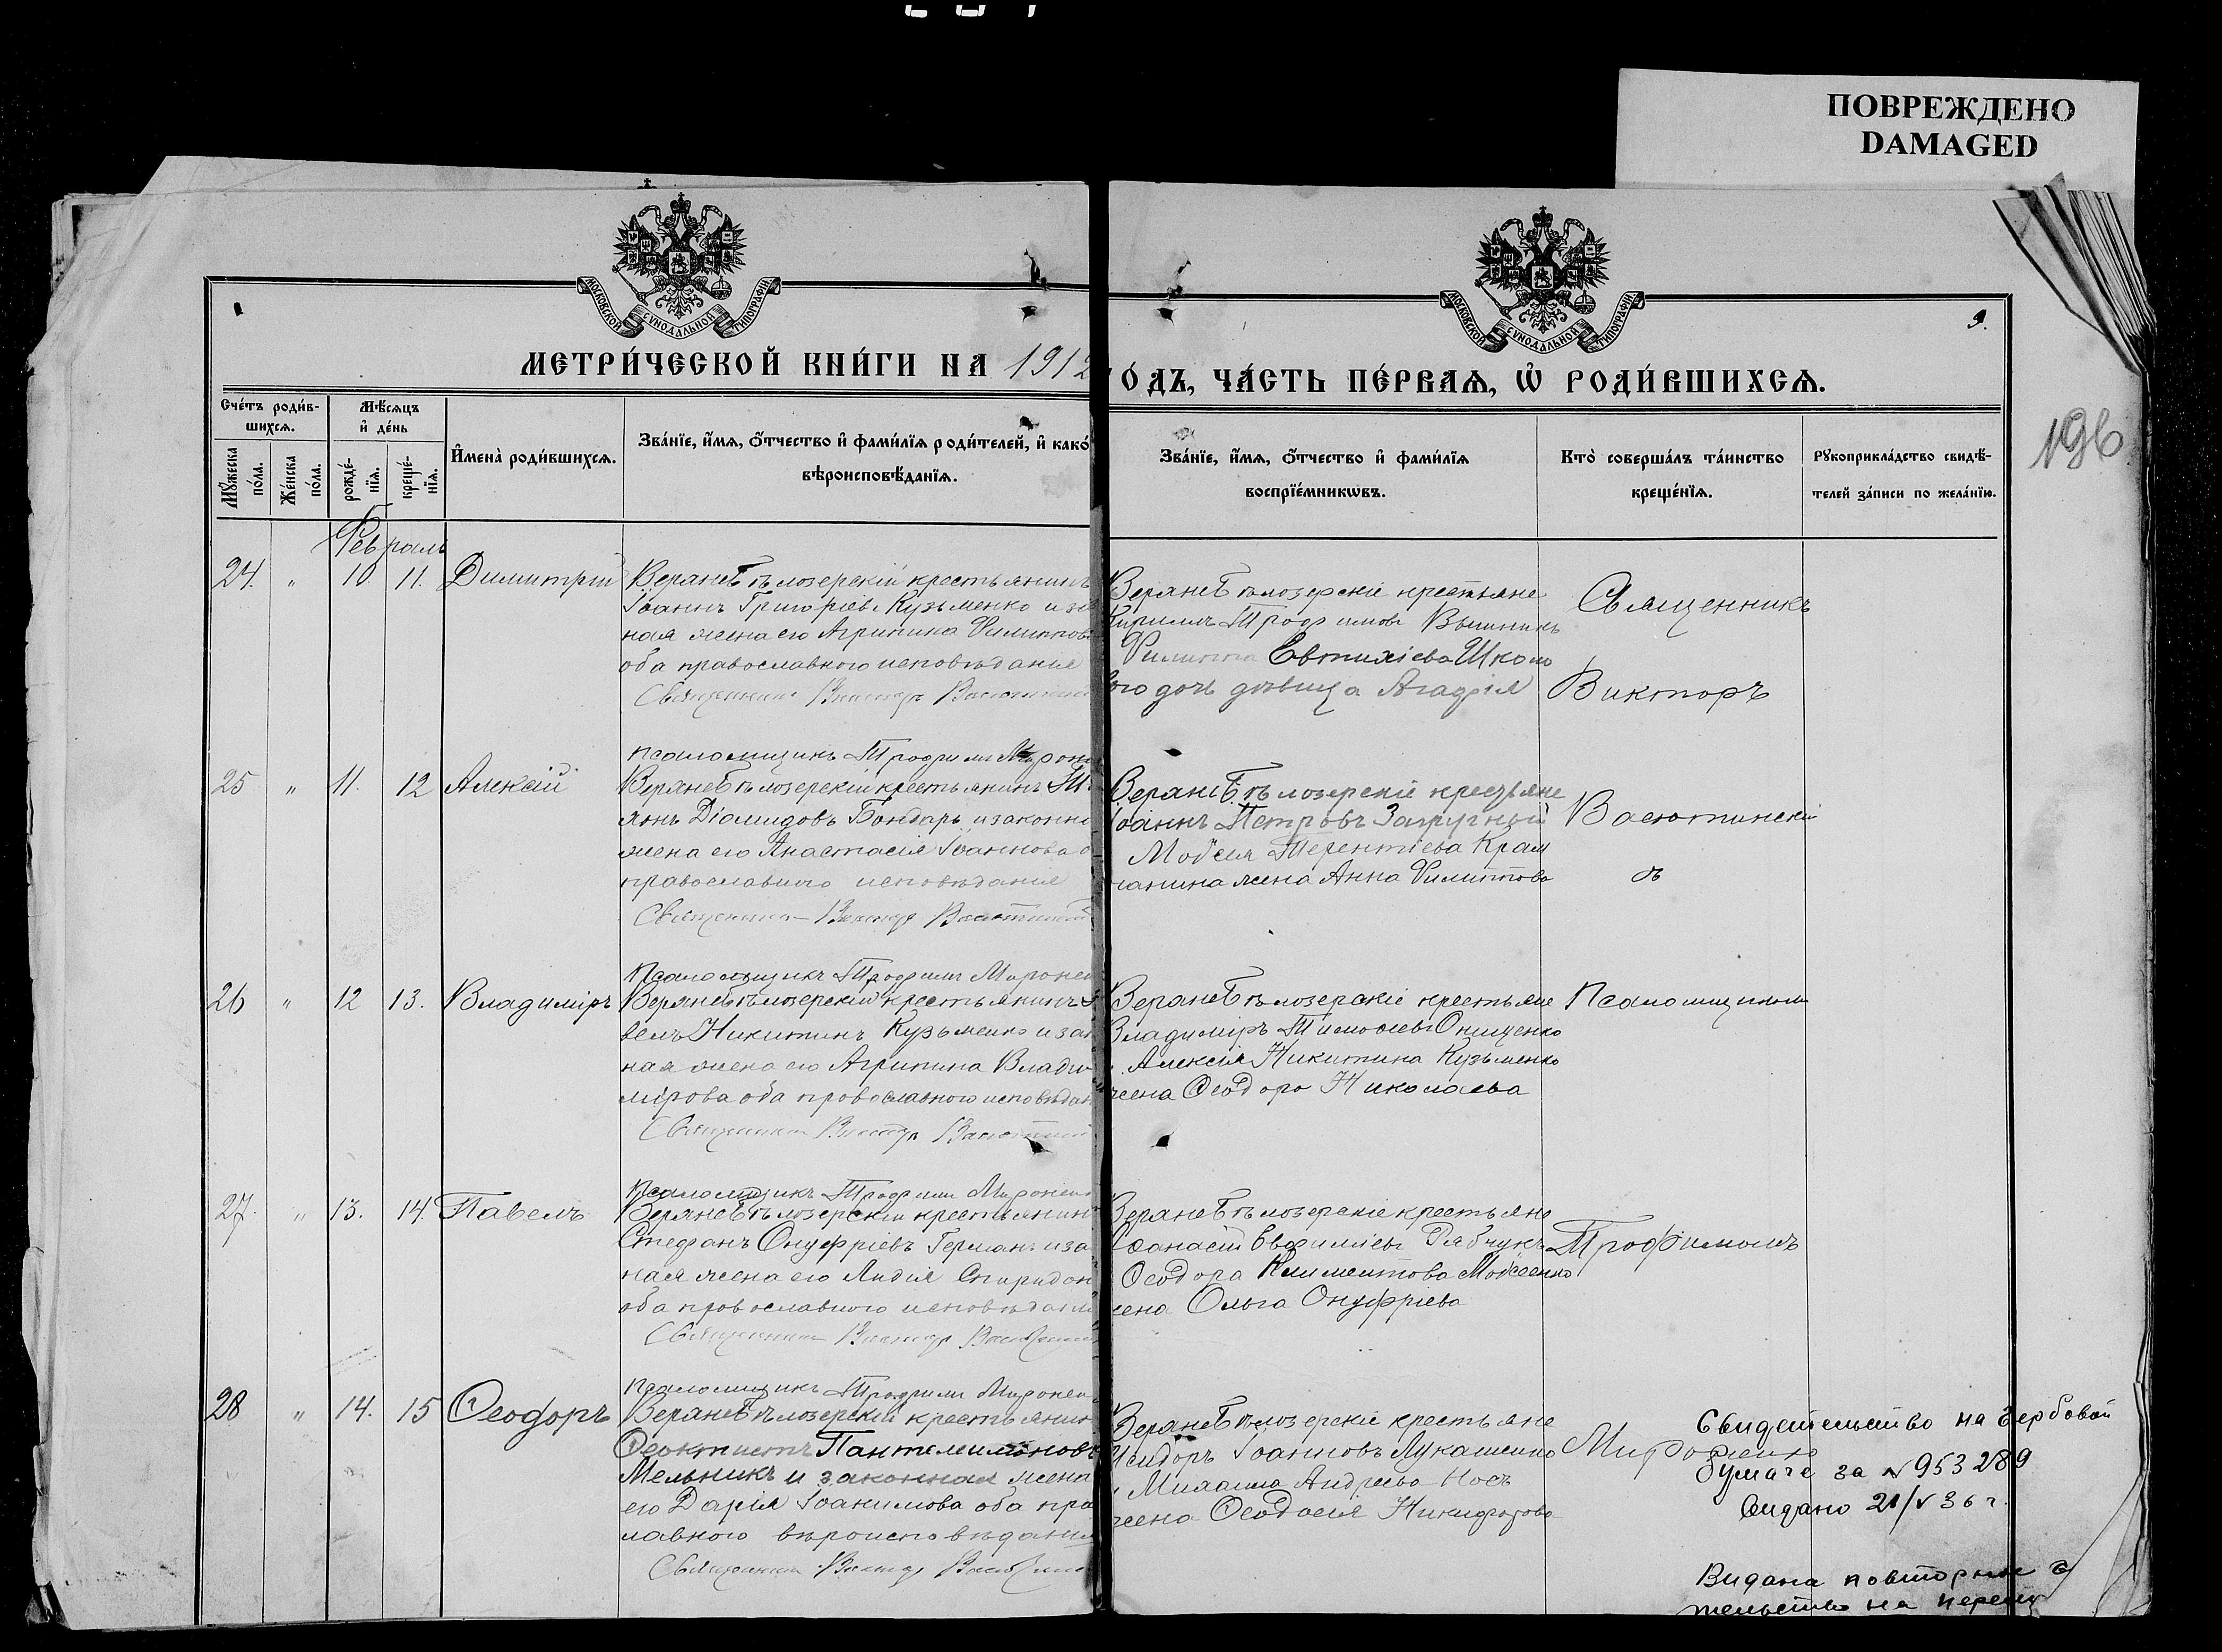 ПОВРЕЖДЕНО
DAMAGED
МОСКОВСКОЙ СѴНОДАЛЬНОЙ ТИПОГРАФІИ
МОСКОВСКОЙ СѴНОДАЛЬНОЙ ТИПОГРАФІИ
9.
196
МЕТРИ́ЧЕСКОЙ КНИ́ГИ НА 1912
О́ДЪ, ЧА́СТЬ ПЕ́РВАѦ, Ѡ҆ РОДИ́ВШИХСѦ.
Сче́тъ роди́в-
шихсѧ.
Мѣ́сѧцъ
и҆ де́нь
Мꙋ́жеска
по́ла.
Же́нска
по́ла.
рожде́-
нїѧ.
креще́-
нїѧ.
И҆мена̀ роди́вшихсѧ.
Зва́нїе, и҆́мѧ, ѻ҆́тчество и҆ фами́лїѧ роди́телей, и҆ како́
вѣроисповѣ́данїѧ.
Зва́нїе, и҆́мѧ, ѻ҆́тчество и҆ фами́лїѧ
воспрїе́мникѡвъ.
Кто̀ соверша́лъ та́инство
креще́нїѧ.
Рꙋкоприкла́дство свидѣ́-
телей за́писи по жела́нїю.
Февраль
24. " 10 11. Димитрій
Верхнебѣлозерскій крестьянинъ
Іоаннъ Григоріевъ Кузьменко и за
ная жена его Агрипина Филиппов
оба православного исповѣданія
Священникъ Викторъ
Верхнебѣлозерскіе крестьяне
Кириллъ Трофимовъ
Филиппа Евтихіева Школ
ого дочь дѣвица Агафія
Священникъ
Викторъ
Псаломщикъ Трофимъ Мирон
25 " 11. 12 Алексій
Верхнебѣлозерскій крестьянинъ
Діомидовъ Бондарь и законно
жена его Анастасія Іоаннова о
православного исповѣданія
Священникъ Викторъ
Верхнебѣлозерскіе крестьяне
Іоаннъ Петровъ
Моѵсея Терентіева
жена Анна Филиппова
Васютинскій
ъ
Псаломщикъ Трофимъ Миронен
26 " 12 13. Владиміръ
Верхнебѣлозерскій крестьянинъ
велъ Никитинъ Кузьменко и зак
ная жена его Агрипина Влади
мірова оба православного исповѣдан
Священникъ Викторъ
Верхнебѣлозерскіе крестьяне
Владиміръ Тимоѳеевъ Онищенко
Алексія Никитина Кузьменко
жена Ѳеодора Николаева
Псаломщикомъ
Псаломщикъ Трофимъ Миронен
27. " 13. 14. Павелъ
Верхнебѣлозерскій крестьянинъ
Стефанъ Онуфріевъ Германъ и за
ная жена его Лидія Спиридон
оба православного исповѣданія
Священникъ Викторъ
Верхнебѣлозерскіе крестьяне
Аѳанасій Евфиміевъ Рябчукъ
Ѳеодора Климентова Моѵсеенко
жена Ольга Онуфріева
Трофимомъ
Псаломщикъ Трофимъ Миронен
28 " 14. 15 Ѳеодоръ
Верхнебѣлозерскій крестьянин
Ѳеоктистъ Пантелеимоновъ
Мельникъ и законная жена
его Дарія Іоакимова оба пра
лавного вѣроисповѣданія
Священникъ Викторъ
Верхнебѣлозерскіе крестьяне
Исидоръ Іоанновъ Лукашенко
Михаила Андреева Носъ
жена Ѳеодосія Никифорова
Мироненко
Свидетельство на гербовой
бумаге за № 953289
Выдано 21/V 36 г.
Видана повторное с
тельство на